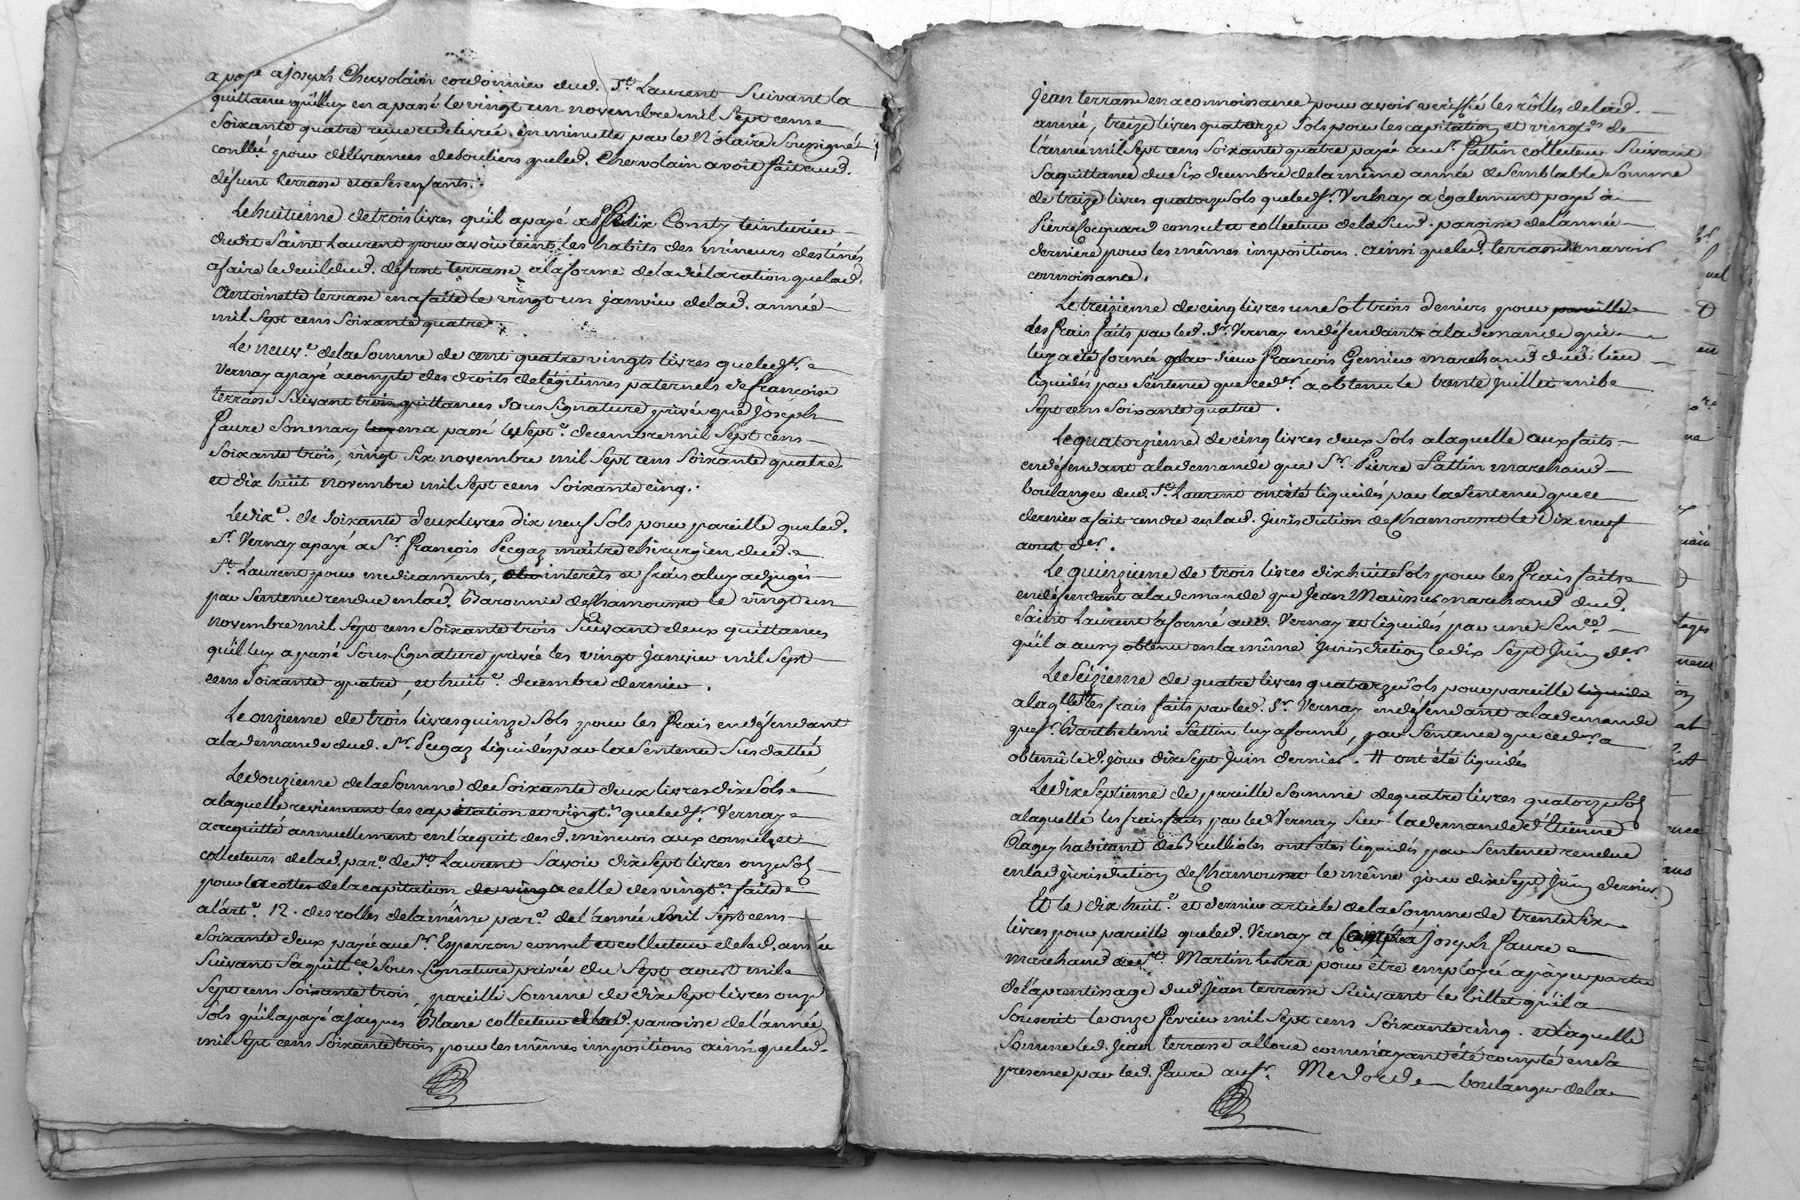 a payé a joseph Chervolain cordonnier dud. St. Laurent suivant la
quittance quil luy en a passé le vingt un novembre mil sept cens
soixante quatre reçue et delivrée en minutte par le Notaire soussigné
conllé pour delivrances de souliers que led. Chervolain avoit fait aud.
défunt terrasse et a ses enfants.
Le huitieme de trois livres qu'il a payé a Felix Comty teinturier
dudit Saint Laurent pour avoir teint les habits des mineurs destinés
a faire le deuil dud. défunt terrasse a la forme de la déclaration que lad.
Antoinette terrasse en a faite le vingt un janvier de lad. année
mil sept cens soixante quatre.
Le neuve. de la somme de cent quatre vingts livres que led. sr.
Vernay a payé a compte des droits de légitimes paternels de françoise
terrasse suivant trois quittances sous signature privée que joseph
faure son mary en a passé les sept e. decembre mil sept cens
soixante trois, vingt six novembre mil sept cens soixante quatre
et dix huit novembre mil sept cens soixante cinq.
Le dix e. de soixante deux livres dix neuf sols pour pareille que led.
sr. Vernay a payé a sr. françois Pecgaz maitre chirurgien dud.
St. Laurent pour medicaments, interêts et frais a luy adjugés
par sentence rendue en lad. Baronnie de Chamousset le vingt un
novembre mil sept cens soixante trois suivant deux quittances
qu'il luy a passé sous signature privée les vingt janvier mil sept
cens soixante quatre, et huit e. decembre dernier.
Le onzieme de trois livres quinze sols pour les frais en défendant
a la demande dud. sr. Pecgaz liquidés par la sentence susdattée
Le douzieme de la somme de soixante deux livres dix sols
a laquelle reviennent les capitation et vingt s. que led. sr. Vernay
a acquitté annuellement en l'acquit des d. mineurs aux consuls et
collecteurs de lad. par e. de St. Laurent savoir dix sept livres onze sols
pour la cotte de la capitation de vingt celle des vingt s. faite
a l'art e. 12. des rolles de la même par e. de l'année mil sept cens
soixante deux payée au sr. Esperron consul et collecteur de lad. année
suivant sa quittce. sous signature privée du sept aoust mil
sept cens soixante trois, pareille somme de dix sept livres onze
sols qu'il a payé a jacques Blanc collecteur de lad. paroisse de l'année
mil sept cens soixante trois, pour les mêmes impositions ainsi que led.
jean terrasse en a connoissance pour avoir veriffié les rôlles de lad.
année, treize livres quatorze sols pour les capitation et vingt s. de
l'année mil sept cens soixante quatre payée au sr. Pattin collecteur suivant
sa quittance du six decembre de la même année de semblable somme
de treize livres quatorze sols que led. sr. Vernay a également payé à
Pierre Cocquard consul et collecteur de la sud. paroisse de l'année
derniere pour les mêmes impositions. ainsi que led. terrasse en avoir
connoissance.
Le treizieme de cinq livres une sol trois deniers pour pareille
des frais faits par led. Sr. Vernay en défendant a la demande qui
luy a été formée par sieur françois Grenier marchand dud. lieu
liquidés par sentence que ce der. a obtenu le trente juillet mil
sept cens soixante quatre.
Le quatorzieme de cinq livres deux sols a laquelle ceux faits
en défendant a la demande que Sr. Pierre Pattin marchand
boulanger dud. St. Laurent ont été liquidés par la sentence que ce
dernier a fait rendre en lad. jurisdiction de Chamousset le dix neuf
aoust der.
Le quinzieme de trois livres dix huit sols pour les frais faits
en défendant a la demande que jean Meunier marchand dud.
Saint Laurent a formé aud. Vernay et liquides par une sen ce.
qu'il a aussy obtenu en la même jurisdiction le dix sept juin der.
Le seizieme de quatre livres quatorze sols pour pareille liquide
a laqlle. les frais faits par led. Sr. Vernay en défendant a la demande
que sr. Barthelemi Pattin luy a formé, par sentence que ce der. a
obtenu le d. jour dix sept juin dernier. # ont été liquidés
Le dix septieme de pareille somme de quatre livres quatorze sols
a laquelle les frais faits par led Vernay sur la demande d'Etienne
Ragey habitant de Brullioles ont été liquidés par sentence rendue
en lad jurisdiction de Chamousset le même jour dix sept juin dernier
Et le dix huit e. et dernier article de la somme de trente six
livres pour pareille que led. Vernay a compté a joseph faure
marchand de St. Martin lestra pour être employée a payer partie
de l'aprentissage dud. jean terrasse suivant le billet qu'il a
souscrit le onze fevrier mil sept cens soixante cinq. et laquelle
somme led. jean terrasse alloue comme ayant été compté en sa
presence par led. faure au sr. Medord boulanger de la